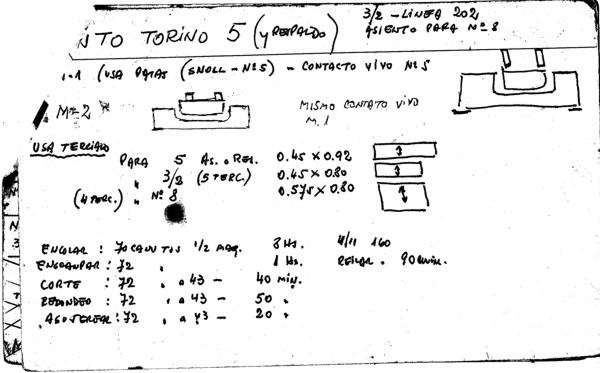 NTO TORINO 5 (y RESPALDO)
3/2 - LINEA 202
ASIENTO PARA Nº 8
1-1 (USA PATAS (SNOLL - Nº 5) - CONTACTO VIVO Nº 5
M-2
MISMO CONTATO VIVO
M. 1
USA TERCIADO
PARA 5 AS. o RES. 0.45 x 0.92
" 3/2 (5 TERC.) 0.45 x 0.80
(4 TERC.) " Nº 8 0.575 x 0.80
ENCOLAR : 70 1/2 MAQ. 3 HS. 4/11 160
: 72 " 1 HS. 90 MIN.
CORTE : 72 " a 43 - 40 MIN.
REDONDEO : 72 " a 43 - 50 "
AGUJEREAR : 72 " a 43 - 20 "